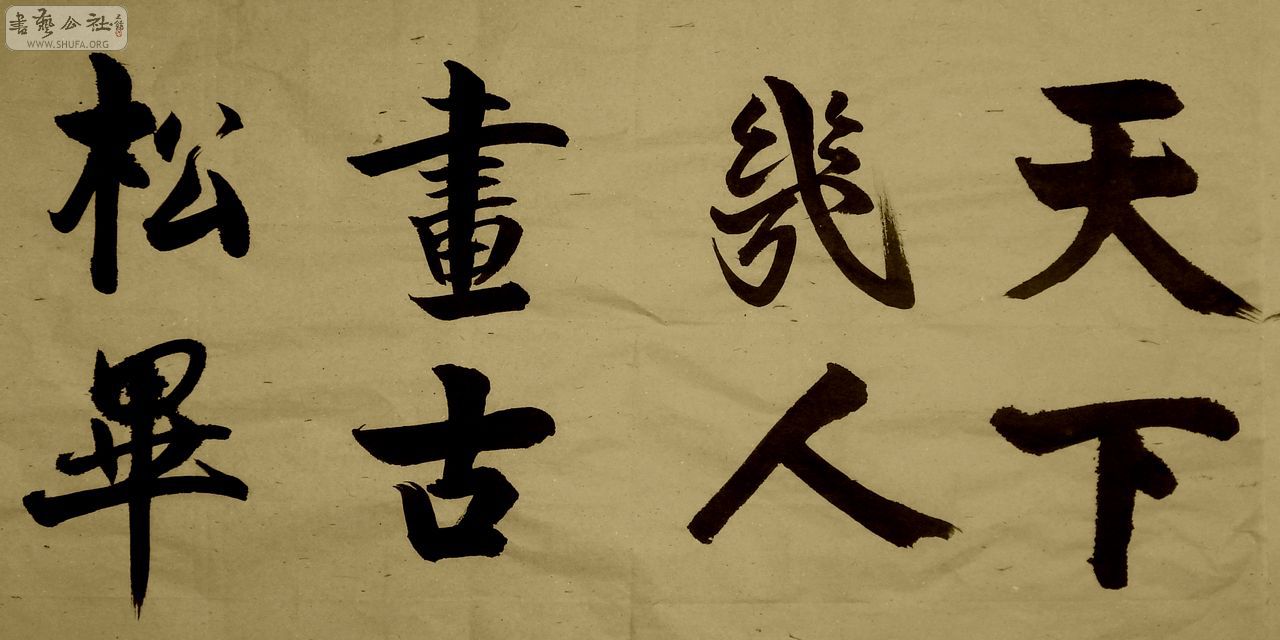 天下
幾人
畫古
松畢
書藝公社
WWW.SHUFA.ORG